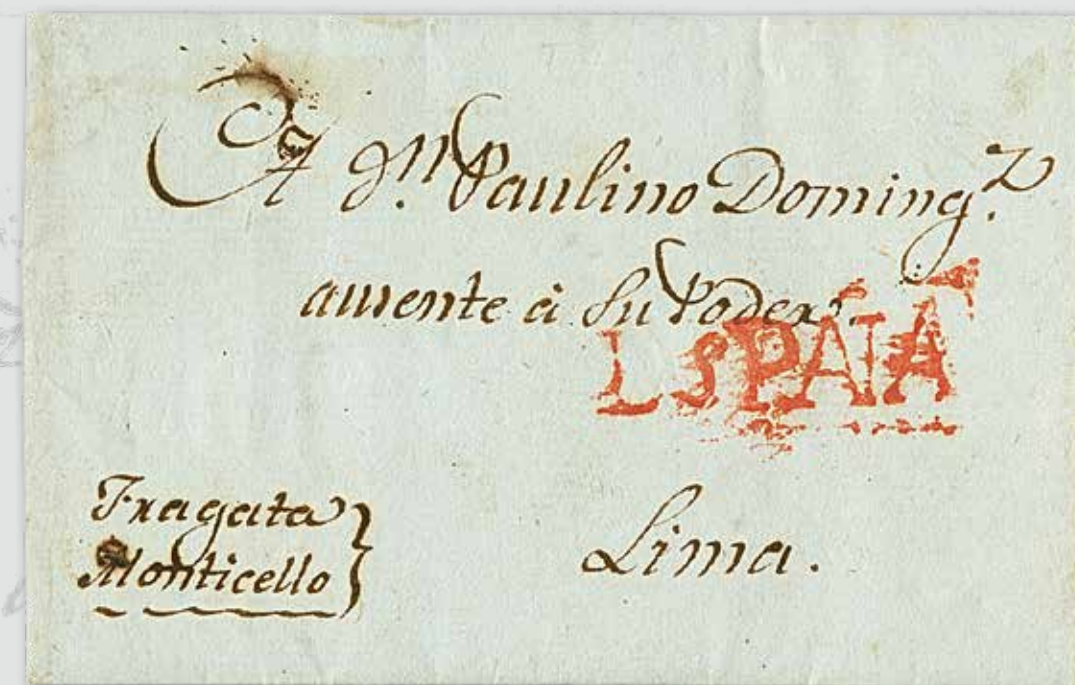 A Dn. Paulino Domingz.
ausente à Su Poder.
ESPAÑA
Fragata
Monticello
Lima.